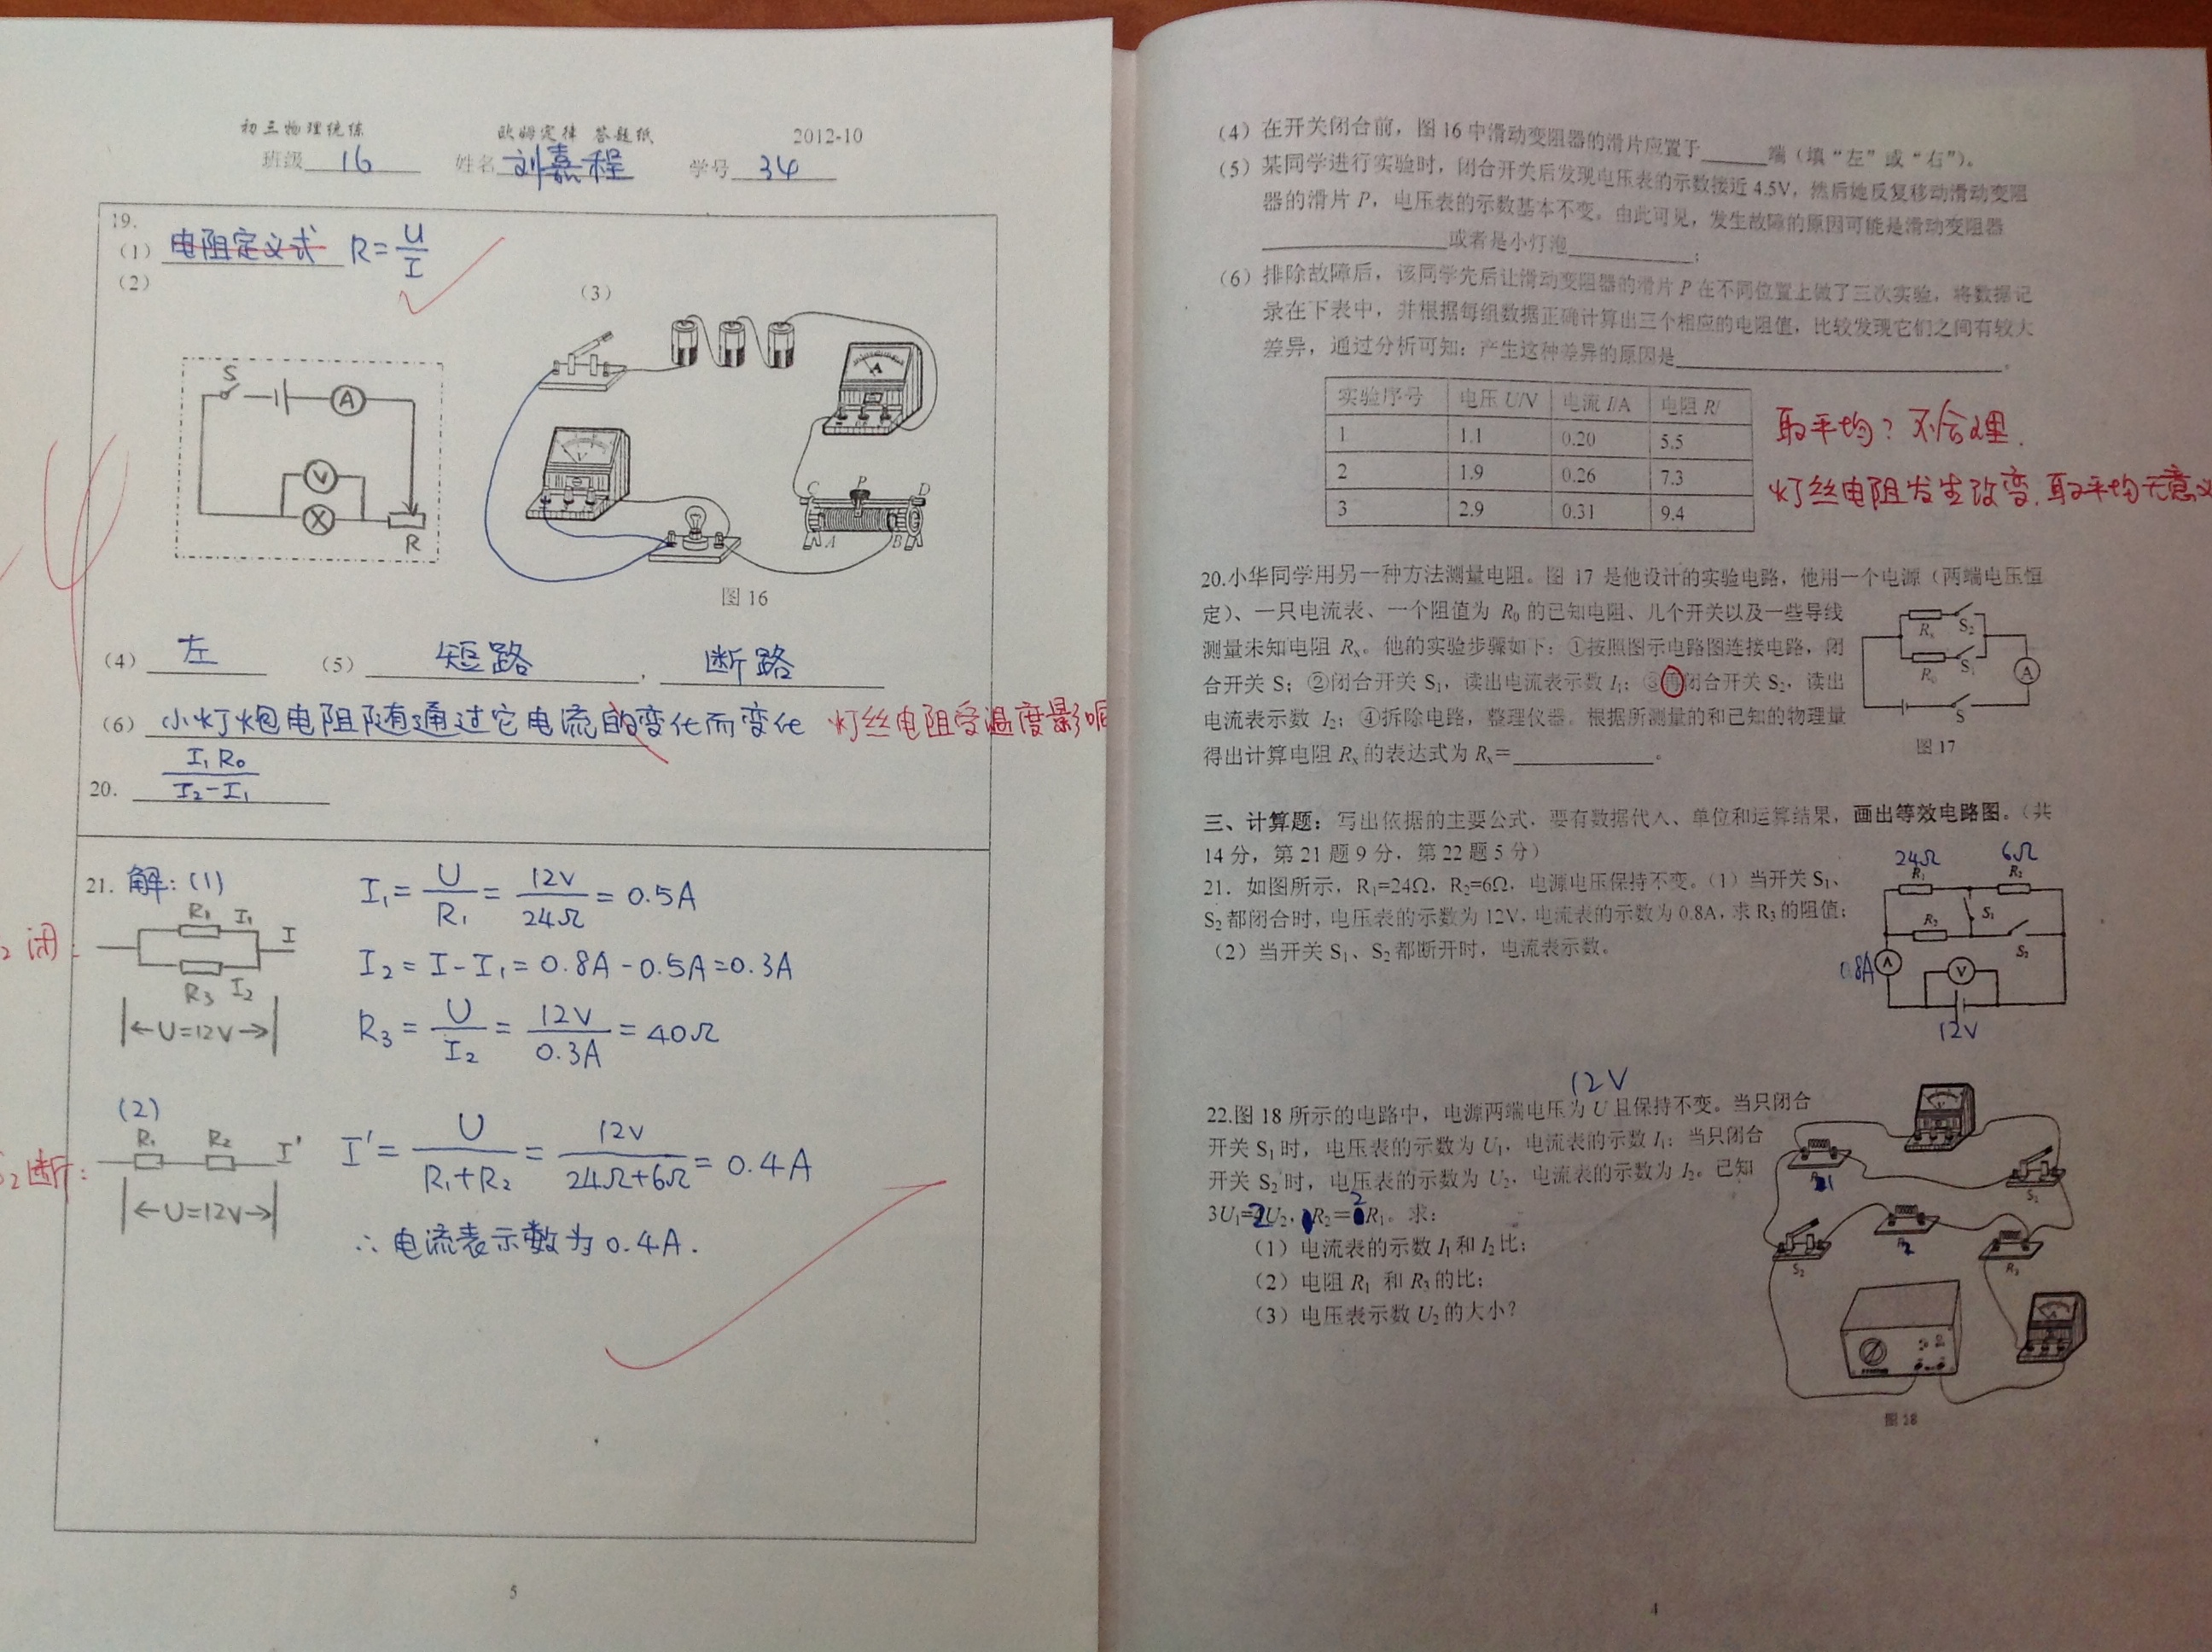 初三物理统练 欧姆定律 答题纸 2012-10
班级 16 姓名 刘嘉程 学号 34
19.
(1) 电阻定义式 R=U/I
(2)
(3)
S
A
V
R
A
V
C P D
A B
图16
(4) 左 (5) 短路 , 断路
(6) 小灯炮电阻随通过它电流的变化而变化 灯丝电阻受温度影响
20. I₁R₀/(I₂-I₁)
21. 解:(1) I₁=U/R₁=12V/24Ω=0.5A
2闭:
R₁ I₁ I
R₃ I₂
I₂=I-I₁=0.8A-0.5A=0.3A
|←U=12V→|
R₃=U/I₂=12V/0.3A=40Ω
(2)
S2断:
R₁ R₂ I'
I'=U/(R₁+R₂)=12V/(24Ω+6Ω)=0.4A
|←U=12V→|
∴电流表示数为0.4A.
5
(4) 在开关闭合前,图16中滑动变阻器的滑片应置于______端(填“左”或“右”)。
(5) 某同学进行实验时,闭合开关后发现电压表的示数接近4.5V,然后她反复移动滑动变阻
器的滑片P,电压表的示数基本不变。由此可见,发生故障的原因可能是滑动变阻器
______或者是小灯泡______;
(6) 排除故障后,该同学先后让滑动变阻器的滑片P在不同位置上做了三次实验,将数据记
录在下表中,并根据每组数据正确计算出三个相应的电阻值,比较发现它们之间有较大
差异,通过分析可知:产生这种差异的原因是______。
实验序号 电压U/V 电流I/A 电阻R/
1 1.1 0.20 5.5
2 1.9 0.26 7.3
3 2.9 0.31 9.4
取平均?不合理.
灯丝电阻发生改变.取平均无意义
20.小华同学用另一种方法测量电阻。图17是他设计的实验电路,他用一个电源(两端电压恒
定)、一只电流表、一个阻值为R₀的已知电阻、几个开关以及一些导线
测量未知电阻Rₓ。他的实验步骤如下:①按照图示电路图连接电路,闭
合开关S;②闭合开关S₁,读出电流表示数I₁;③再闭合开关S₂,读出
电流表示数I₂;④拆除电路,整理仪器。根据所测量的和已知的物理量
得出计算电阻Rₓ的表达式为Rₓ=______。
Rₓ S₂
R₀ S₁
A
S
图17
三、计算题:写出依据的主要公式,要有数据代入、单位和运算结果,画出等效电路图。(共
14分,第21题9分,第22题5分)
21.如图所示,R₁=24Ω,R₂=6Ω,电源电压保持不变。(1)当开关S₁、
S₂都闭合时,电压表的示数为12V,电流表的示数为0.8A,求R₃的阻值;
(2)当开关S₁、S₂都断开时,电流表示数。
24Ω 6Ω
R₁ R₂
R₃ S₁
S₂
0.8A A V
12V
12V
22.图18所示的电路中,电源两端电压为U且保持不变。当只闭合
开关S₁时,电压表的示数为U₁,电流表的示数I₁;当只闭合
开关S₂时,电压表的示数为U₂,电流表的示数为I₂。已知
3U₁=2U₂,R₂=2R₁。求:
(1)电流表的示数I₁和I₂比;
(2)电阻R₁和R₃的比;
(3)电压表示数U₂的大小?
V
S₁
S₂
R₃
A
图18
4